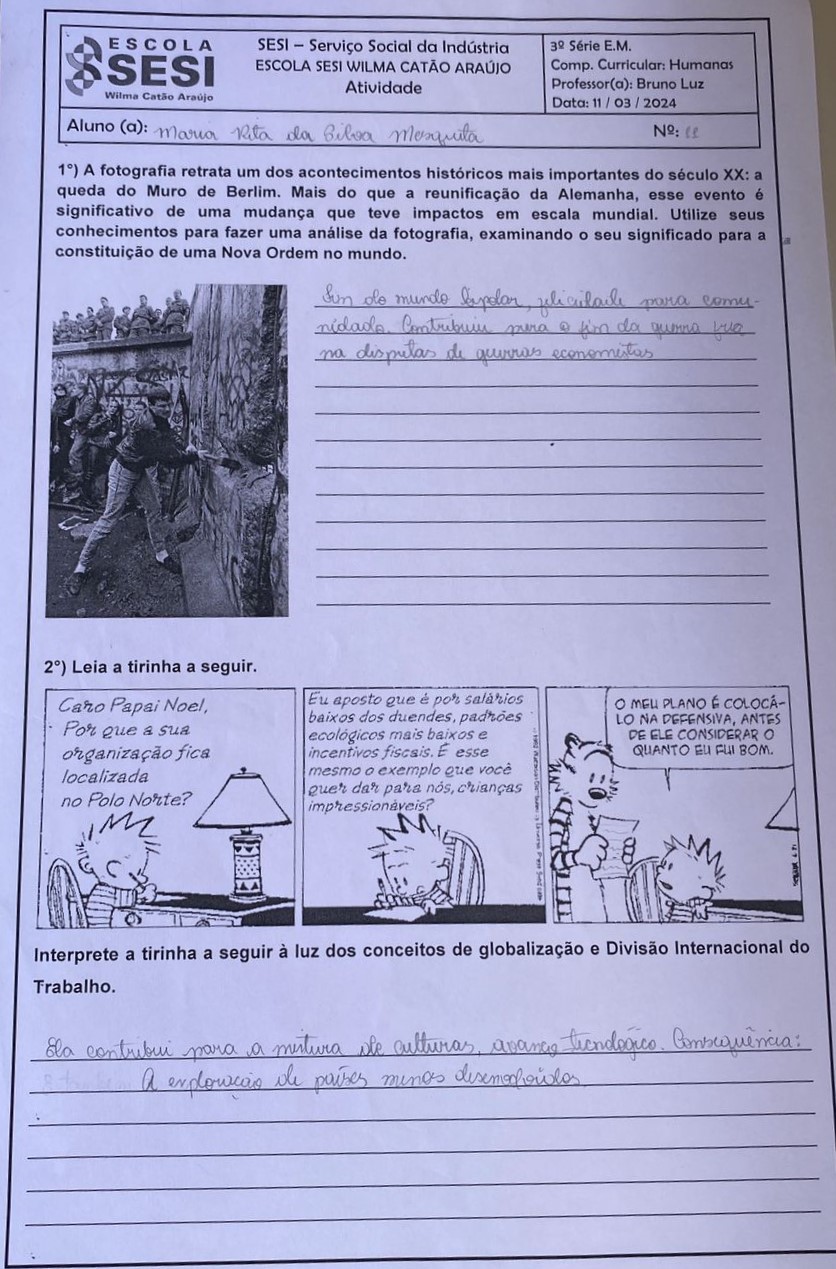 ESCOLA
SESI
Wilma Catão Araújo
SESI – Serviço Social da Indústria
ESCOLA SESI WILMA CATÃO ARAÚJO
Atividade
3º Série E.M.
Comp. Curricular: Humanas
Professor(a): Bruno Luz
Data: 11 / 03 / 2024
Aluno (a): Maria Rita da Silva Mesquita
Nº: 22
1°) A fotografia retrata um dos acontecimentos históricos mais importantes do século XX: a
queda do Muro de Berlim. Mais do que a reunificação da Alemanha, esse evento é
significativo de uma mudança que teve impactos em escala mundial. Utilize seus
conhecimentos para fazer uma análise da fotografia, examinando o seu significado para a
constituição de uma Nova Ordem no mundo.
Fim do mundo bipolar, felicidade para comu-
nidade. Contribuiu para o fim da guerra fria
na disputas de guerras economistas
2°) Leia a tirinha a seguir.
Caro Papai Noel,
Por que a sua
organização fica
localizada
no Polo Norte?
Eu aposto que é por salários
baixos dos duendes, padrões
ecológicos mais baixos e
incentivos fiscais. É esse
mesmo o exemplo que você
quer dar para nós, crianças
impressionáveis?
O MEU PLANO É COLOCÁ-
LO NA DEFENSIVA, ANTES
DE ELE CONSIDERAR O
QUANTO EU FUI BOM.
Interprete a tirinha a seguir à luz dos conceitos de globalização e Divisão Internacional do
Trabalho.
Ela contribui para a mistura de culturas, avanço tecnologico. Consequência:
A exploração de países menos desenvolvidos